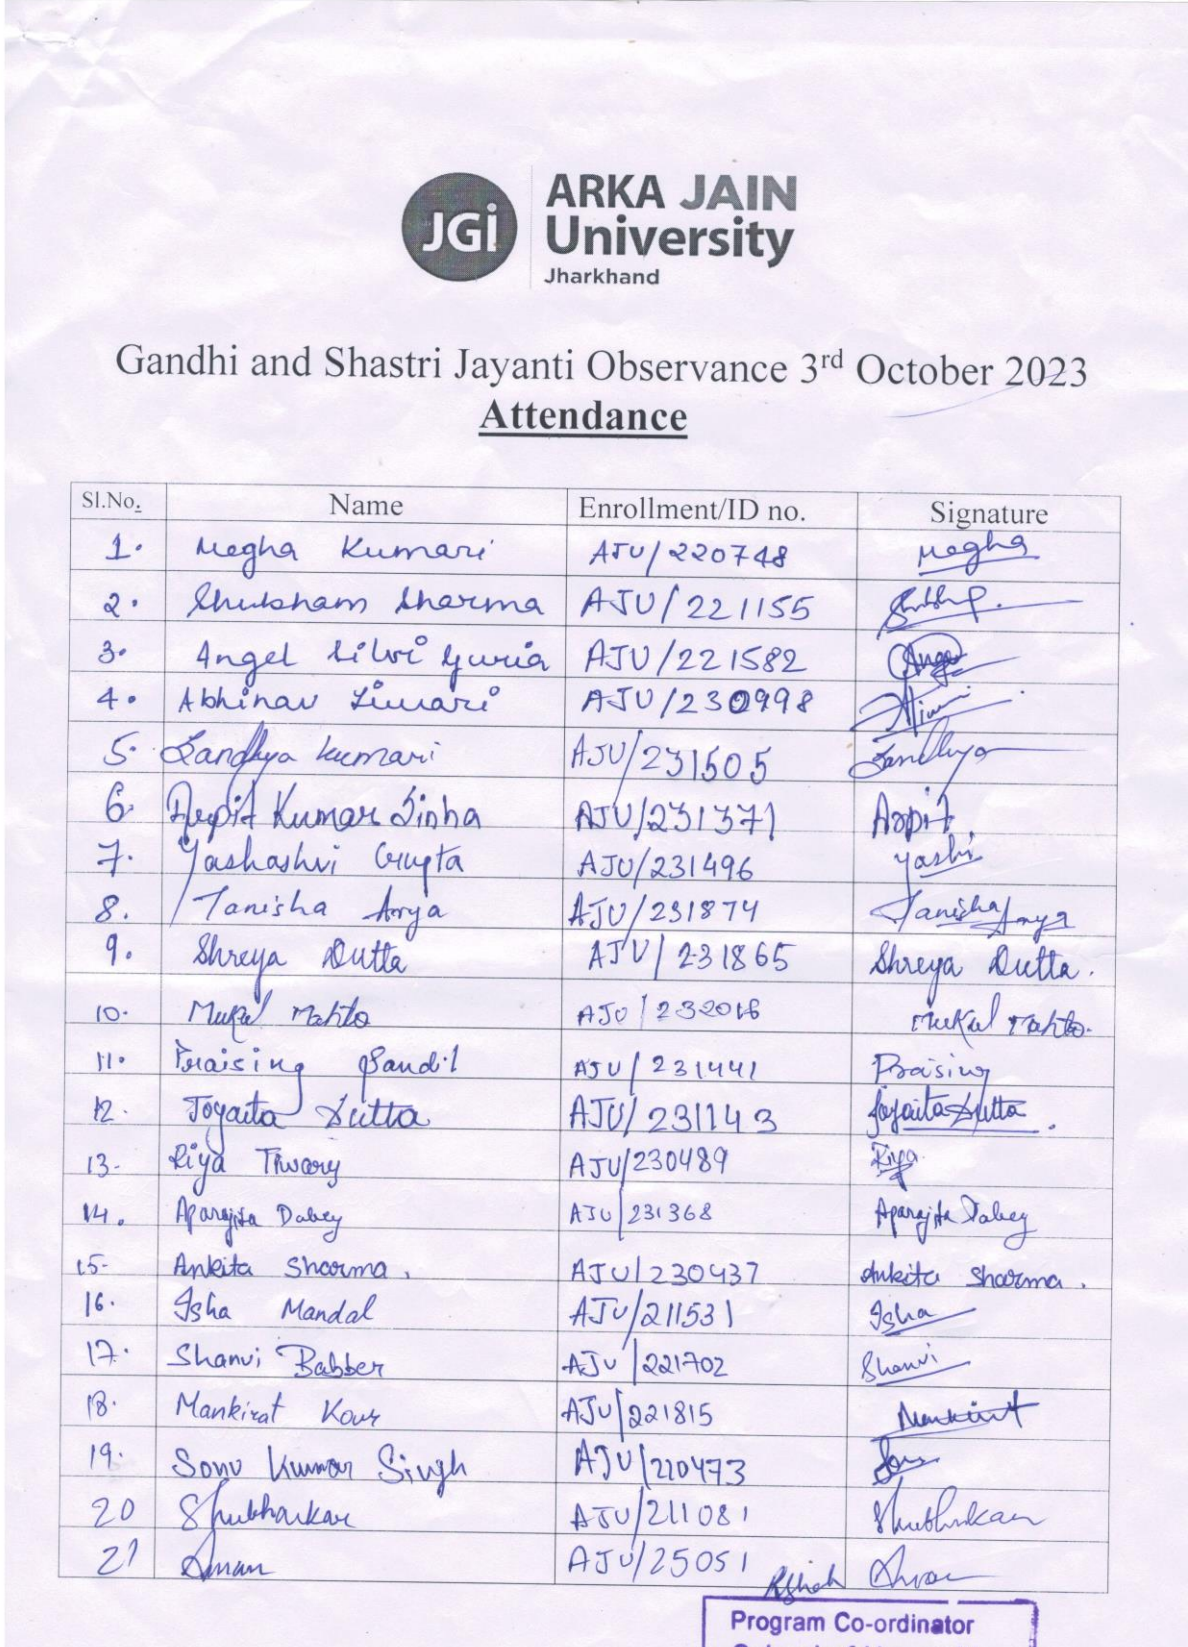 JGi
ARKA JAIN
University
Jharkhand
Gandhi and Shastri Jayanti Observance 3rd October 2023
Attendance
Sl.No. Name Enrollment/ID no. Signature
1. Megha Kumari AJU/220748 Megha
2. Shubham Sharma AJU/221155
3. Angel Silvi Guria AJU/221582 Angel
4. Abhinav Tiwari AJU/230998
5. Sandhya Kumari AJU/231505 Sandhya
6. Arpit Kumar Sinha AJU/231371 Arpit.
7. Yashashvi Gupta AJU/231496 Yashi
8. Tanisha Arya AJU/231874 Tanisha Arya
9. Shreya Dutta AJU/231865 Shreya Dutta.
10. Mukul Mahto AJU/232016 Mukul Mahto.
11. Praising AJU/231441 Praising
12. Joyaita Dutta AJU/231143 Joyaita Dutta.
13- Riya Tiwary AJU/230489 Riya
14. Aparajita Dubey AJU/231368 Aparajita Dubey
15- Ankita Sharma. AJU/230437 Ankita Sharma.
16. Isha Mandal AJU/211531 Isha
17. Shanvi Babber AJU/221702 Shanvi
18. Mankirat Kour AJU/221815 Mankirat
19. Sonu Kumar Singh AJU/220473 Sonu
20 Shubhankar AJU/211081 Shubhankar
21 Aman AJU/25051 Aman
Program Co-ordinator